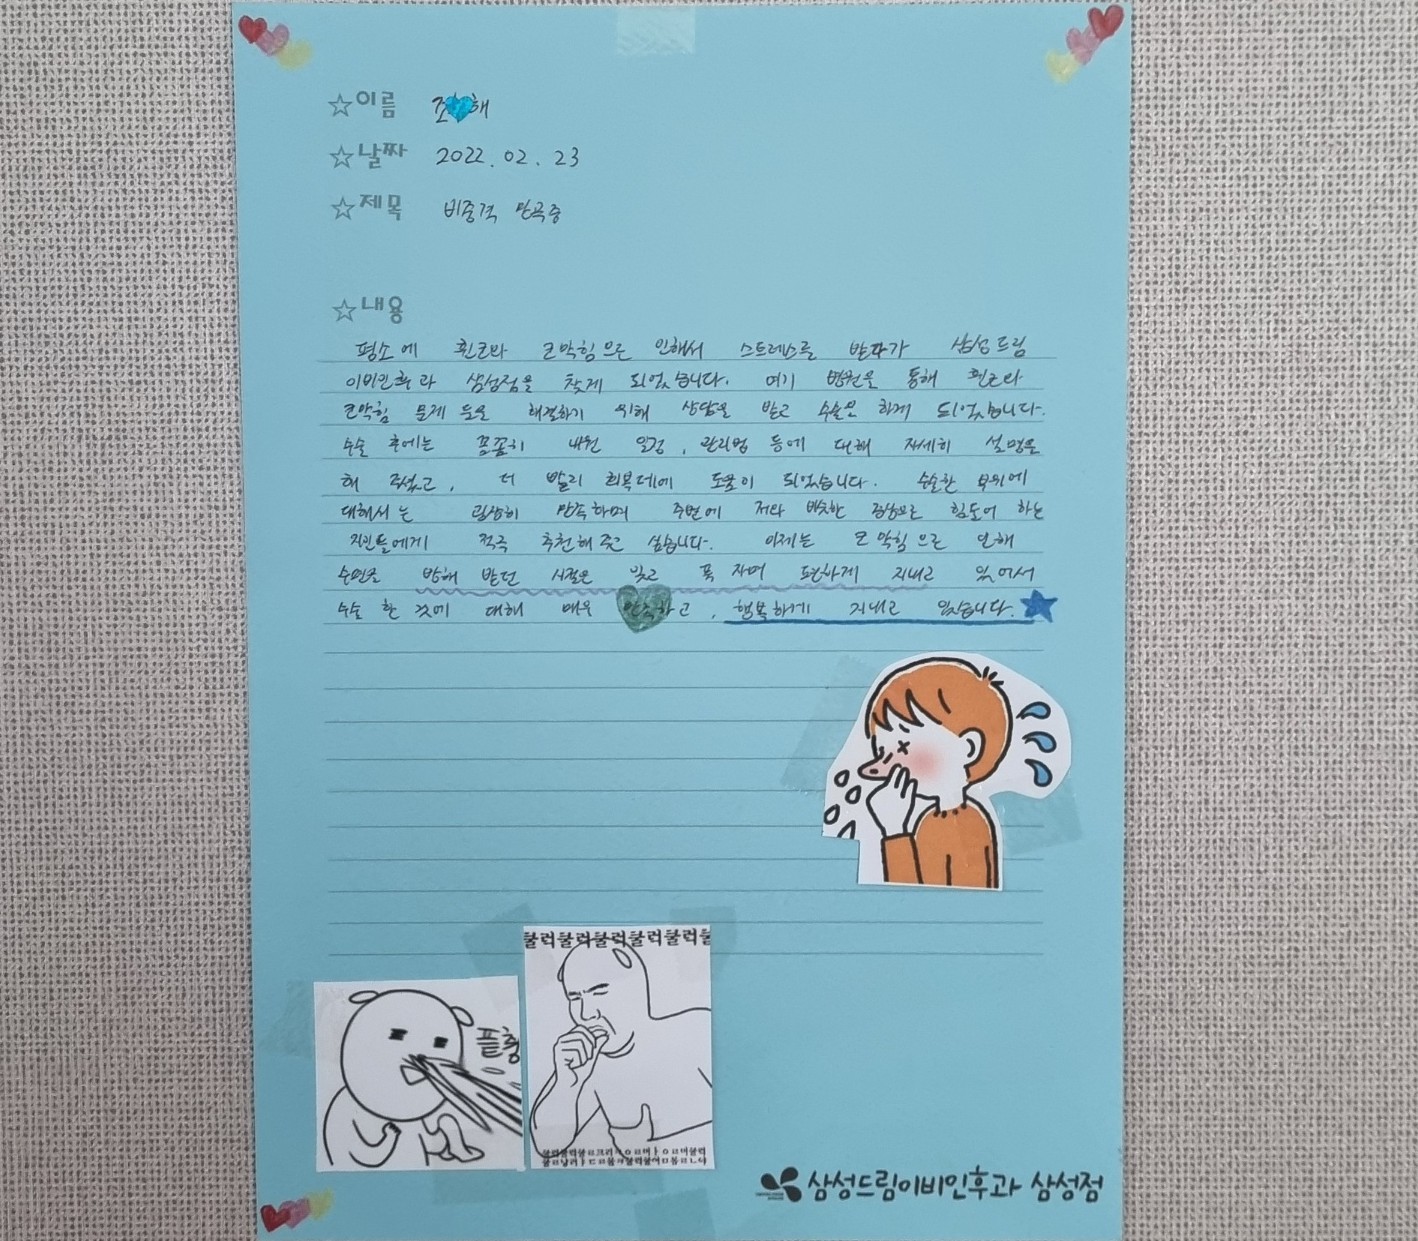 ☆이름 조 해
☆날짜 2022.02.23
☆제목 비중격 만곡증
☆내용
평소에 휜코와 코막힘으로 인해서 스트레스를 받다가 삼성드림
이비인후과 삼성점을 찾게 되었습니다. 여기 병원을 통해 휜코와
코막힘 문제 등을 해결하기 위해 상담을 받고 수술을 하게 되었습니다.
수술 후에는 꼼꼼히 내원 일정, 관리법 등에 대해 자세히 설명을
해 주셨고, 더 빨리 회복데에 도움이 되었습니다. 수술한 부위에
대해서는 굉상히 만족하며 주변에 저와 비슷한 증상으로 힘들어 하는
지인들에게 적극 추천해 주고 싶습니다. 이제는 코막힘으로 인해
수면을 방해 받던 시절은 잊고 푹 자며 편하게 지내고 있어서
수술 한 것에 대해 매우 만족하고, 행복하게 지내고 있습니다.
플충
쿨럭쿨럭쿨럭쿨럭쿨럭쿨
삼성드림이비인후과 삼성점